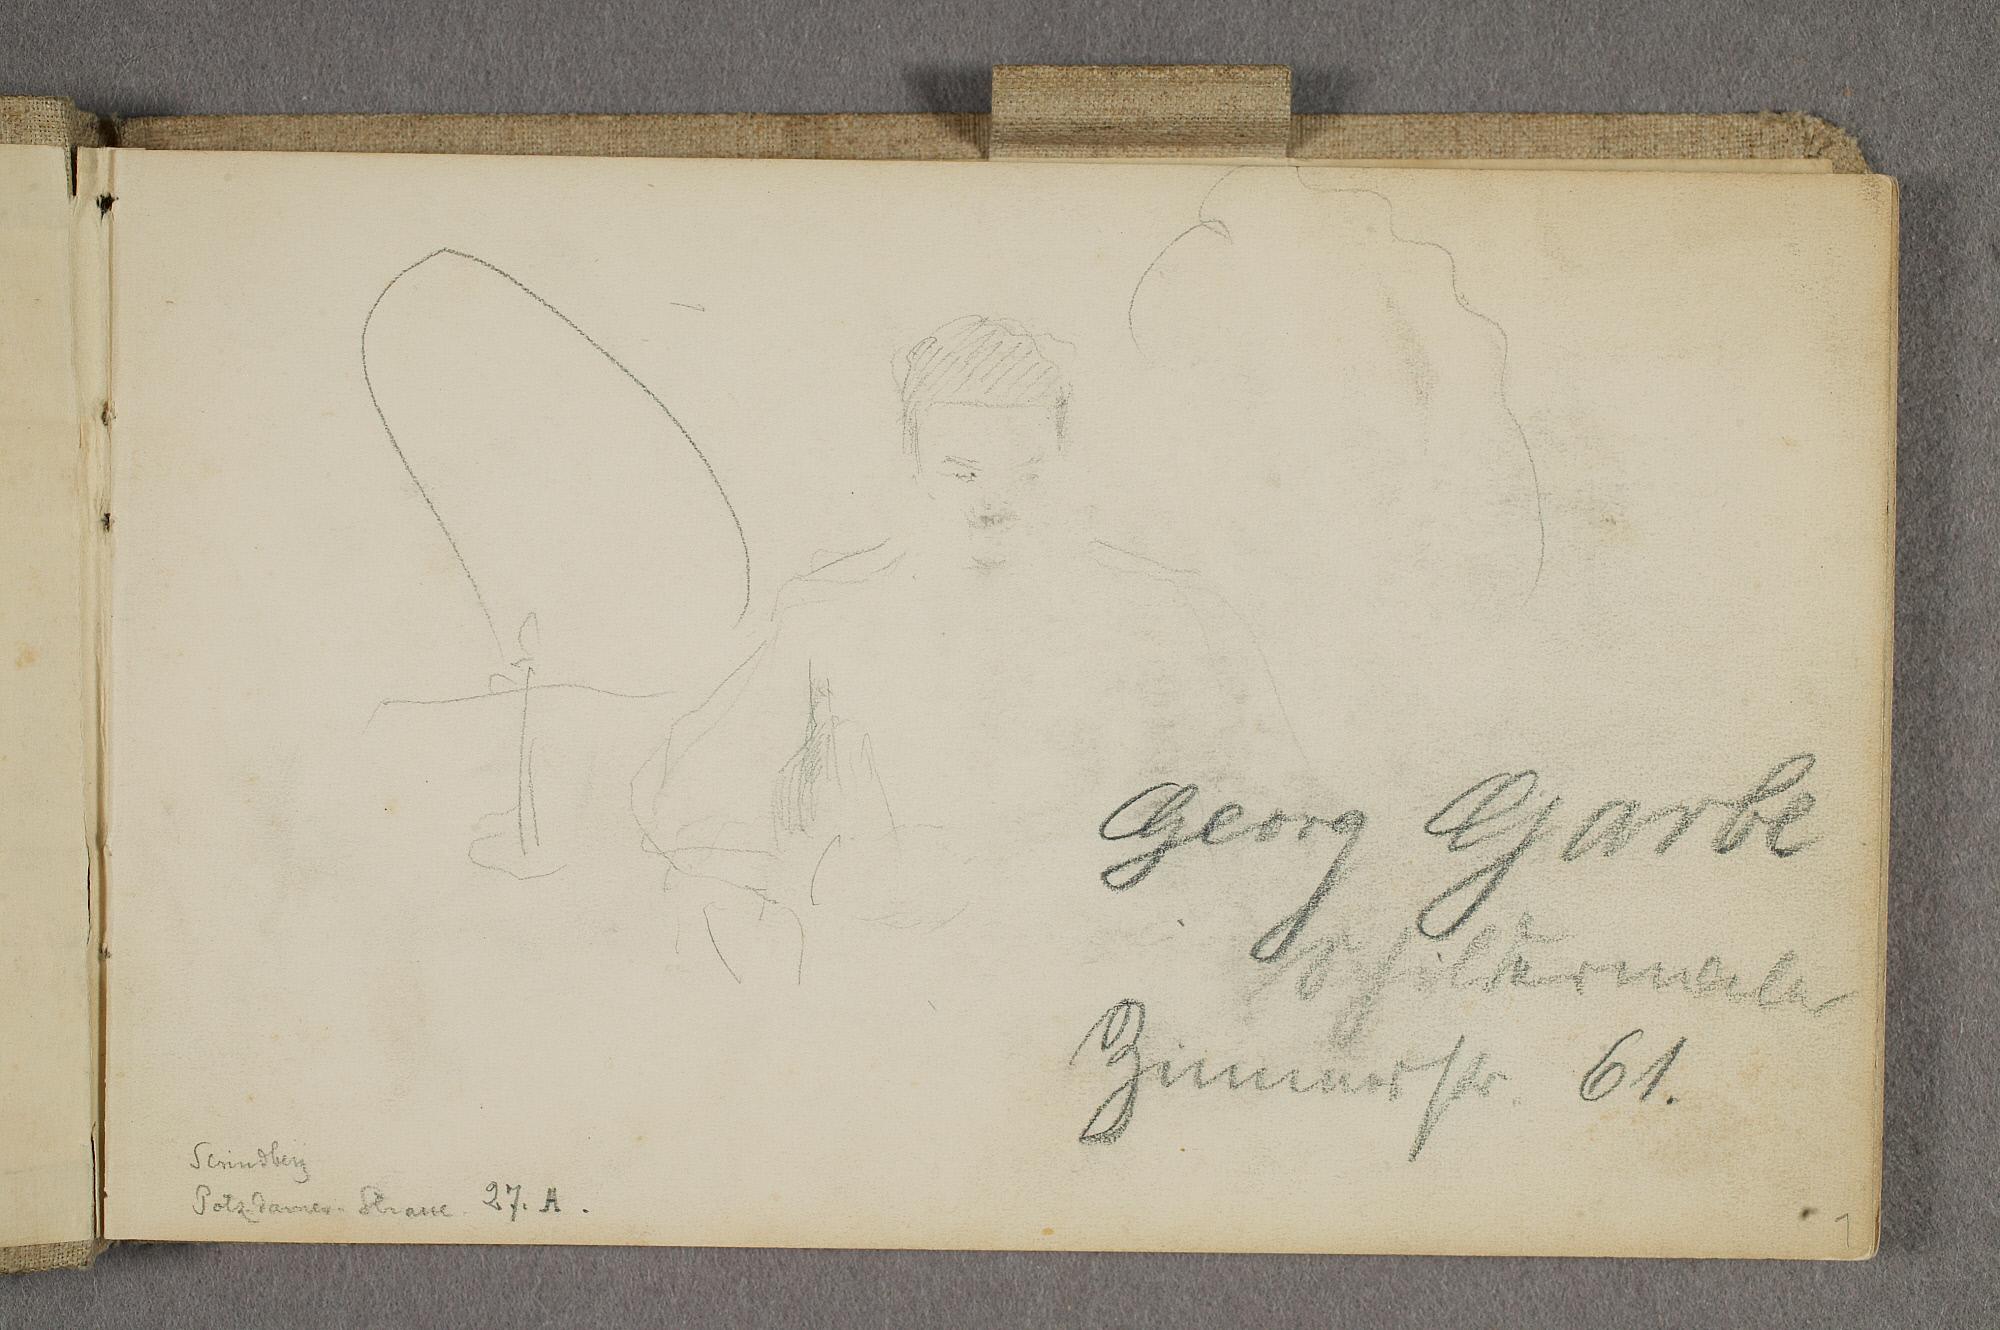 Georg Garbe
Schildermaler
Zimmerstr. 61.
Strindberg
Potzdamer-Strasse 27. A.
1